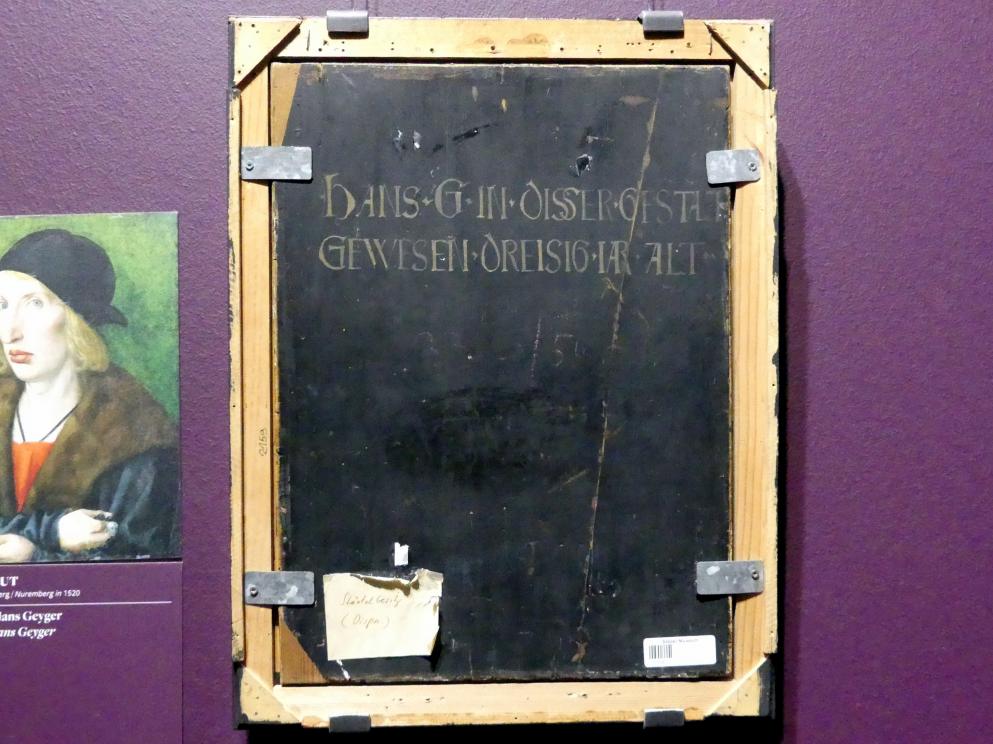 HANS · G · IN · DISSER · GESTALT
GEWESEN · DREISIG · IAR · ALT
2159
(Dispn)
UT
erg / Nuremberg in 1520
Hans Geyger
ans Geyger